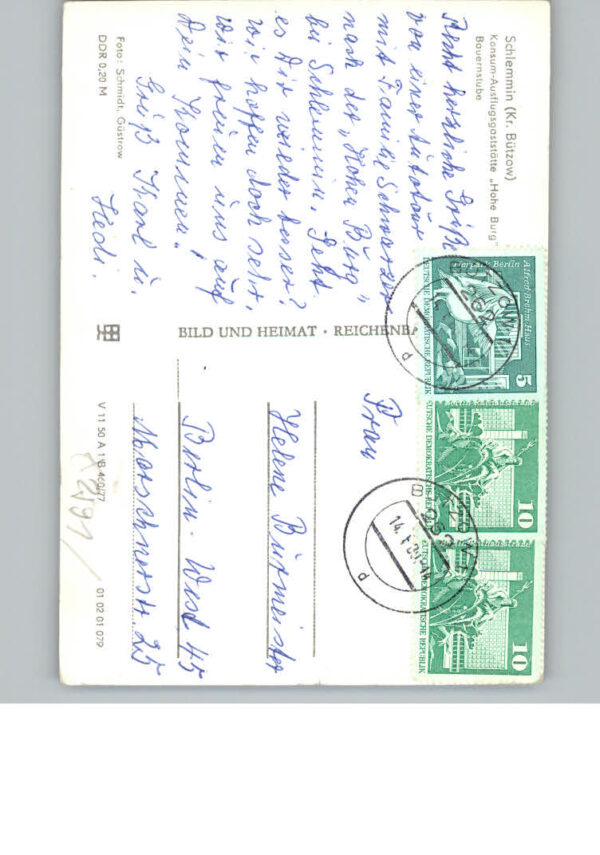 Schlemmin (Kr. Bützow)
Konsum-Ausflugsgaststätte „Hohe Burg"
Bauernstube
Recht herzliche Grüße
von einer Autotour
mit Familie Schwarzer
nach der „Hohen Burg"
bei Schlemmin. Geht
es Dir wieder besser?
wir hoffen doch sehr.
Wir freuen uns auf
Dein Kommen!
Gruß Karl u.
Hedi.
Foto: Schmidt, Güstrow
DDR 0,20 M
BILD UND HEIMAT · REICHENBA
Tierpark Berlin Alfred-Brehm-Haus
DEUTSCHE DEMOKRATISCHE REPUBLIK
5
DEUTSCHE DEMOKRATISCHE REPUBLIK
10
DEUTSCHE DEMOKRATISCHE REPUBLIK
10
Frau
Helene Burmeister
Berlin-West 45
Morschnerstr. 25
V 11 50 A 1/B 460/77
01 02 01 079